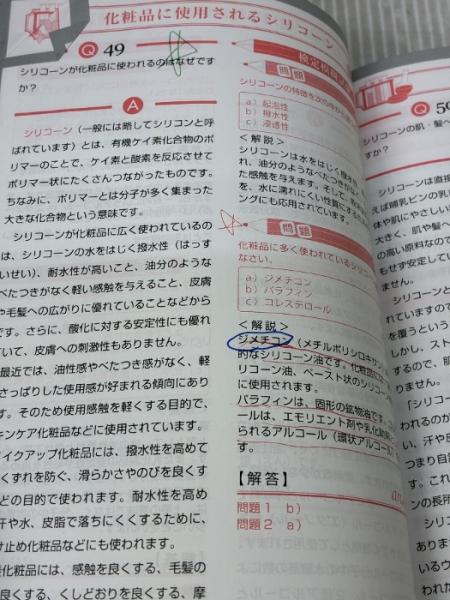 化粧品に使用されるシリコーン
Q 49
シリコーンが化粧品に使われるのはなぜです
か?
A
シリコーン(一般には略してシリコンと呼
ばれています)とは、有機ケイ素化合物のポ
リマーのことで、ケイ素と酸素を反応させて
ポリマー状にたくさんつながったものです。
ちなみに、ポリマーとは分子が多く集まった
大きな化合物という意味です。
シリコーンが化粧品に広く使われているの
は、シリコーンの水をはじく撥水性(はっす
いせい)、耐水性が高いこと、油分のような
べたつきがなく軽い感触を与えること、皮膚
や毛髪への広がりに優れていることなどから
です。さらに、酸化に対する安定性にも優れ
ていて、皮膚への刺激性もありません。
最近では、油性感やべたつき感がなく、軽
さっぱりした使用感が好まれる傾向にあり
す。そのため使用感触を軽くする目的で、
キンケア化粧品などに使用されています。
イクアップ化粧品には、撥水性を高めて
くずれを防ぐ、滑らかさやのびを良くす
どの目的で使われます。耐水性を高め
汗や水、皮脂で落ちにくくするために、
け止め化粧品などにも使われます。
化粧品には、感触を良くする、毛髪の
良くする、くしどおりを良くする、摩
検定模擬
問題
シリコーンの特徴を次の中から
a)起泡性
b)撥水性
c)浸透性
<解説>
シリコーンは水をはじく撥水
れ、油分のようなべたつきがな
た感触を与えます。そして、
を、水に濡れにくい性質にする
ングにも応用されています。
問題
化粧品に多く使われているシリコーン
なさい。
a)ジメチコン
b)パラフィン
c)コレステロール
<解説>
ジメチコン(メチルポリシロキサン)
的なシリコーン油です。化粧品には
リコーン油、ペースト状のシリコーン
に使用されます。
パラフィンは、固形の鉱物油です。コ
ールは、エモリエント剤や乳化助剤
られるアルコール(環状アルコール)
す。
【解答】
問題1 b)
問題2 a)
Q 50
シリコーンの肌・髪へ
すか?
シリコーンは直接
えば哺乳ビンの乳
体や肌にやさしい
大きく、肌や髪へ
の高い原料なので
もせず安定してい
シリコーンと
すので
を覆うという
しかし、スト
するので、肌
りません。
「シリコー
が、
い、汗や皮
つまり自
これは、
ンの長所
シリコ
ありま
いるウ
われた